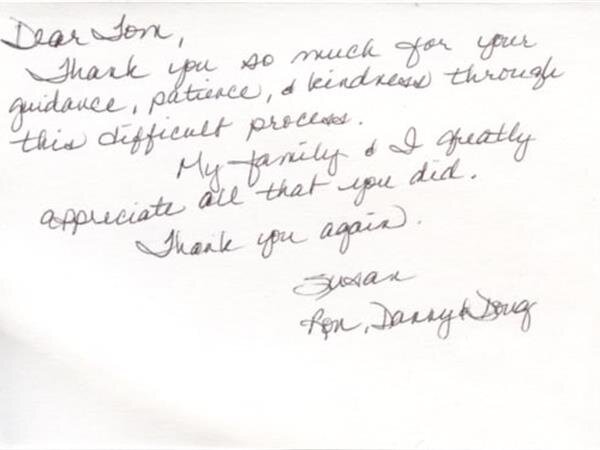 Dear Tom,
Thank you so much for your
guidance, patience, & kindness through
this difficult process.
My family & I greatly
appreciate all that you did.
Thank you again.
Susan
Ron, Danny & Doug